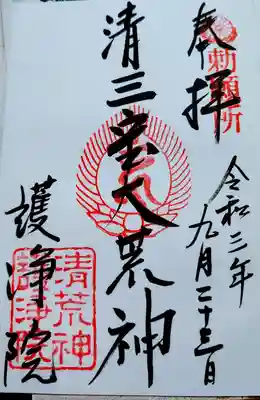 勅願所
奉拝
令和三年九月二十三日
清三宝大荒神
護浄院
清荒神
護浄院